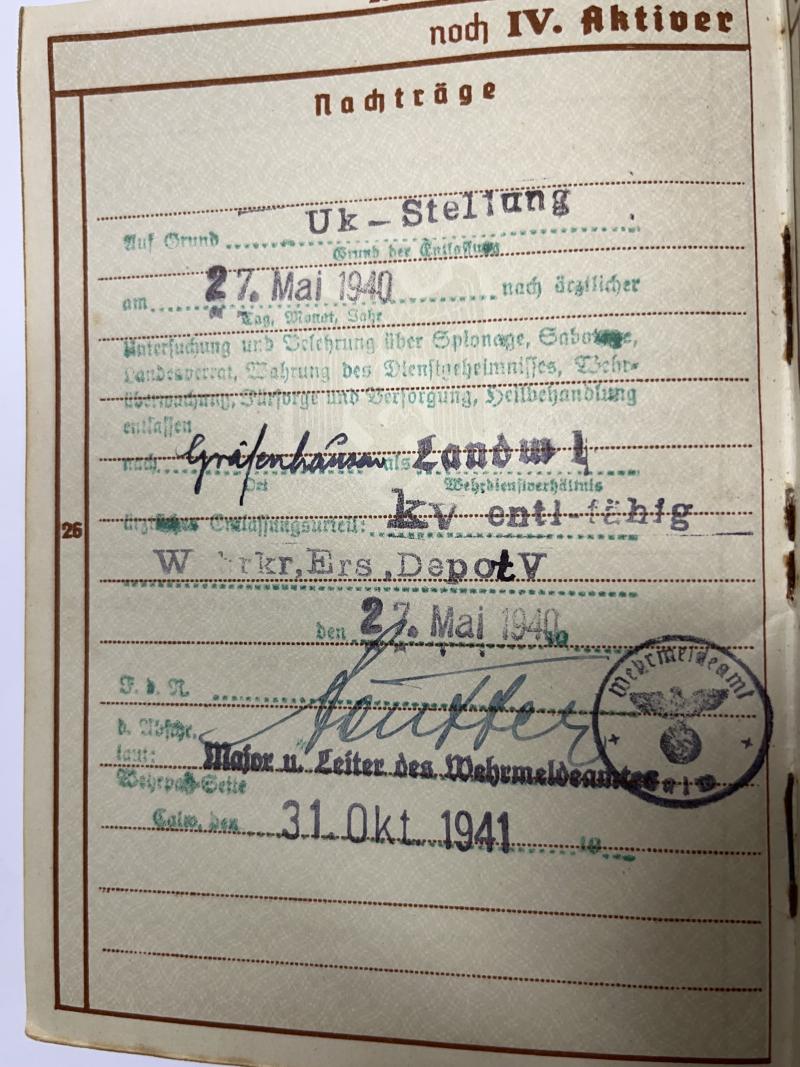 noch IV. Aktiver
Nachträge
Auf Grund Uk-Stellung
Grund der Entlassung
am 27. Mai 1940 nach ärztlicher
Tag, Monat, Jahr
Untersuchung und Belehrung über Spionage, Sabotage,
Landesverrat, Wahrung des Dienstgeheimnisses, Wehr-
überwachung, Fürsorge und Versorgung, Heilbehandlung
entlassen
nach Gräfenhausen als Landw 1
Ort Wehrdienstverhältnis
26
ärztliches Entlassungsurteil: kv entl-fähig
W hrkr,Ers,Depot V
den 27. Mai 1940 19
F. d. R.
d. Abschr.
laut:
Major u. Leiter des Wehrmeldeamtes
Wehrpaß-Seite
Wehrmeldeamt
Calw
Calw, den 31. Okt. 1941 19